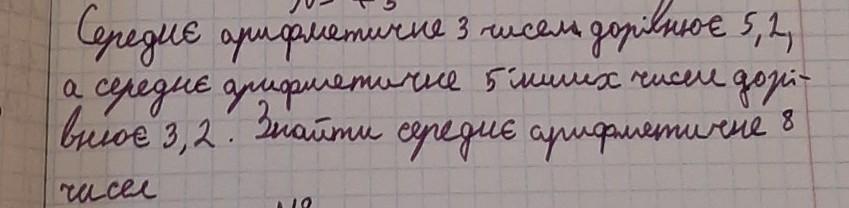 Середнє арифметичне 3 чисел дорівнює 5,2,
а середнє арифметичне 5 інших чисел дорі-
внює 3,2. Знайти середнє арифметичне 8
чисел